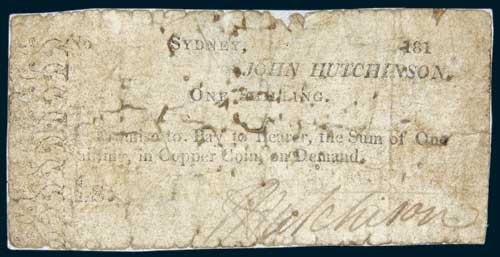 No SYDNEY, 181
JOHN HUTCHINSON.
ONE SHILLING.
to Pay to Bearer, the Sum of One
in Copper Coin, on Demand.
Hutchinson